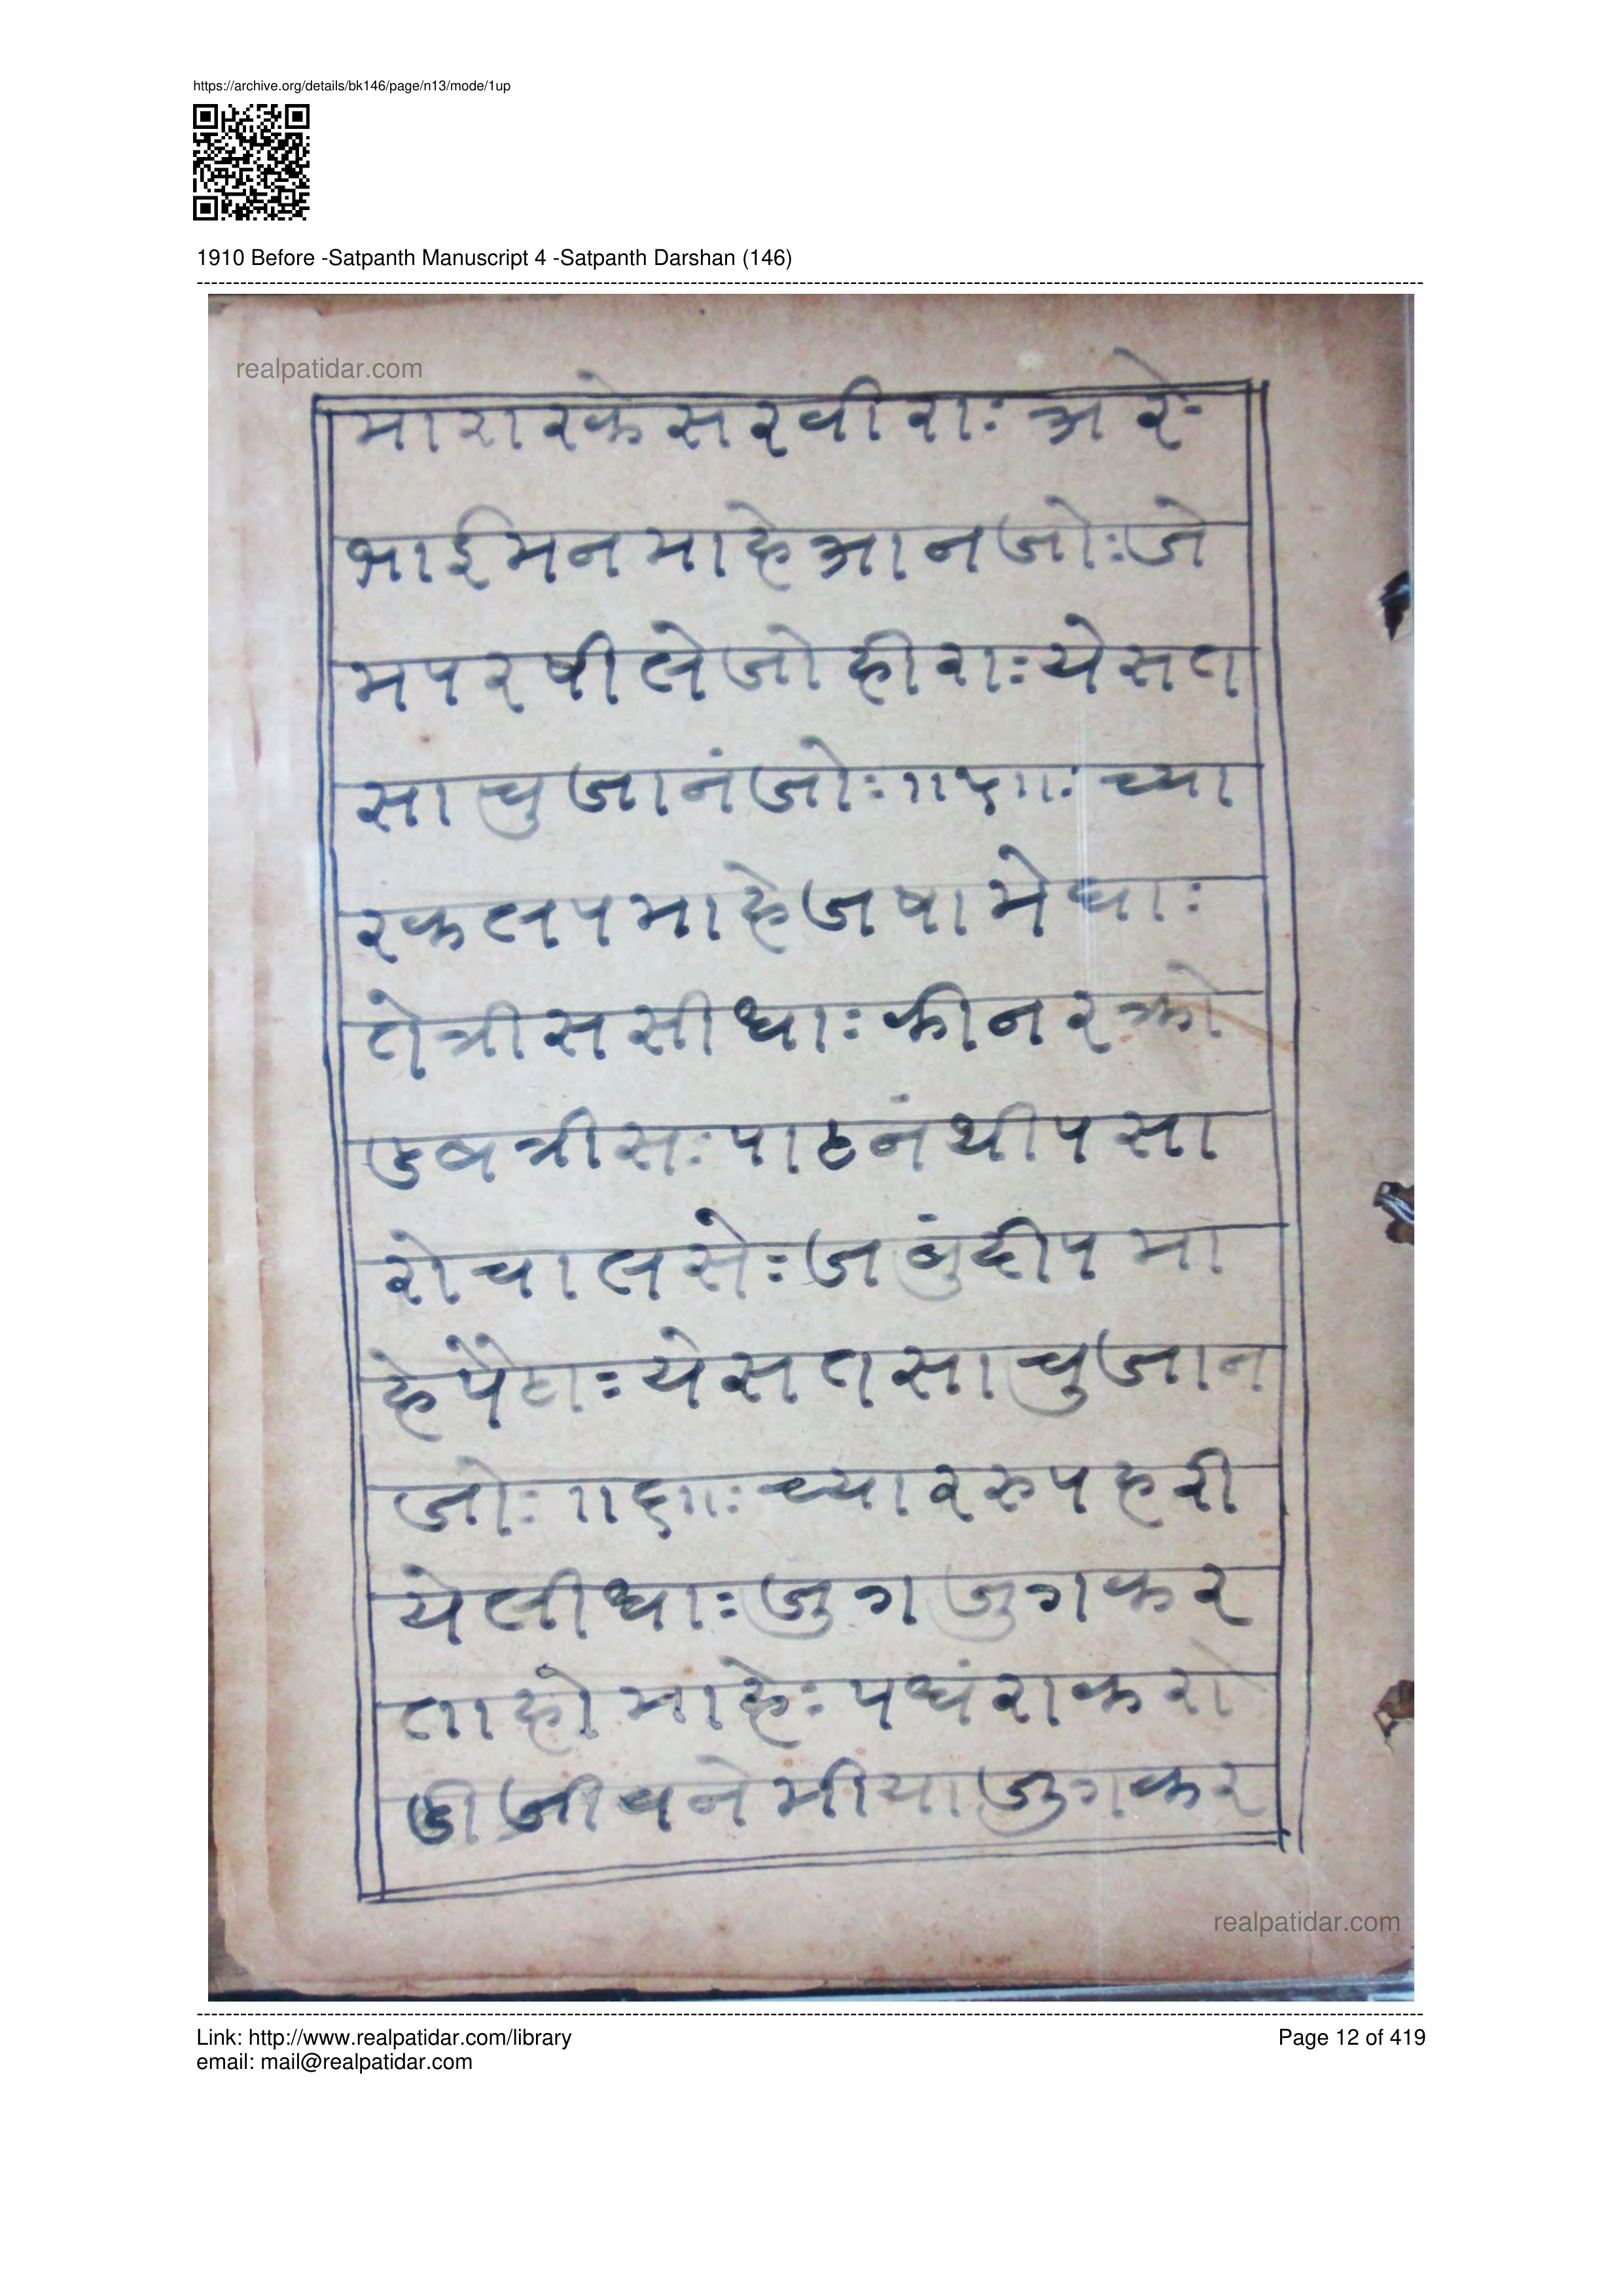 https://archive.org/details/bk146/page/n13/mode/1up
1910 Before -Satpanth Manuscript 4 -Satpanth Darshan (146)
realpatidar.com
मारारकेसरवीराः अरे
भाईमनमाहेआनजोःजे
मपरषीलेजोहीराःयेसत
साचुजानंजोः॥५॥ः च्या
रकलपमाहेजषामेघाः
तेत्रीससीधाःकीनरक्रो
डबत्रीसःपाठनंथीपसा
रोचालसेःजबुंदीपमा
हेपैठाःयेसतसाचुजान
जोः॥६॥ःच्याररुपहरी
येलीधाःजुगजुगकर
ताहोमाहेःपधंराकरो
डीजीवनेमीयाजुगकर
realpatidar.com
Link: http://www.realpatidar.com/library
Page 12 of 419
email: mail@realpatidar.com